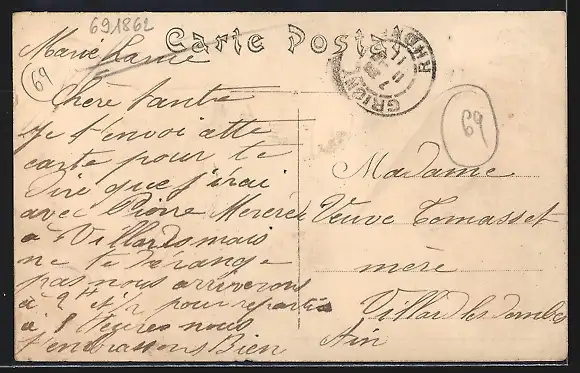 691862
Carte Postale
69
Chère tante
Je t'envoi cette
carte pour te
dire que j'irai
avec Pierre Mercredi
à Villards mais
ne te dérange
pas nous arriverons
à 2h et ½ pour repartir
à 8 heures nous
t'embrassons Bien
GRIGNY
RHONE
69
Madame
Veuve Tomasset
mère
Villard les Dombes
Ain